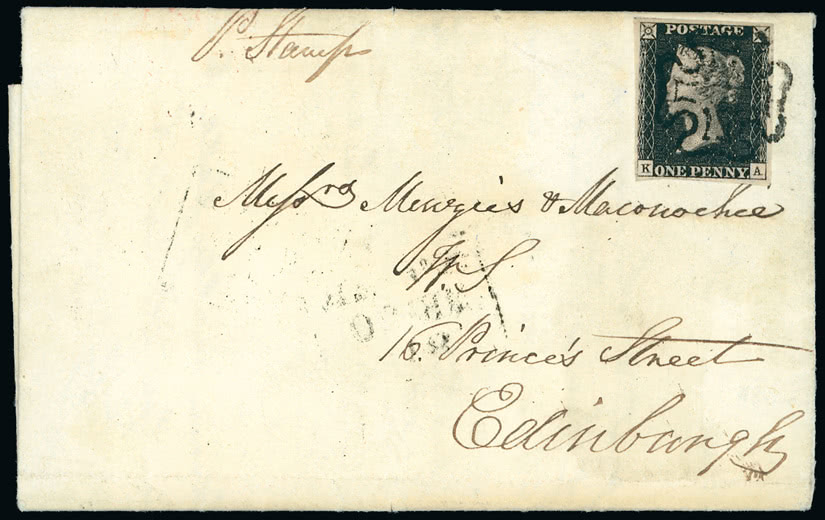 P. Stamp
POSTAGE
K ONE PENNY A
Messrs Menzies & Maconochie
W.S
16. Prince's Street
Edinburgh